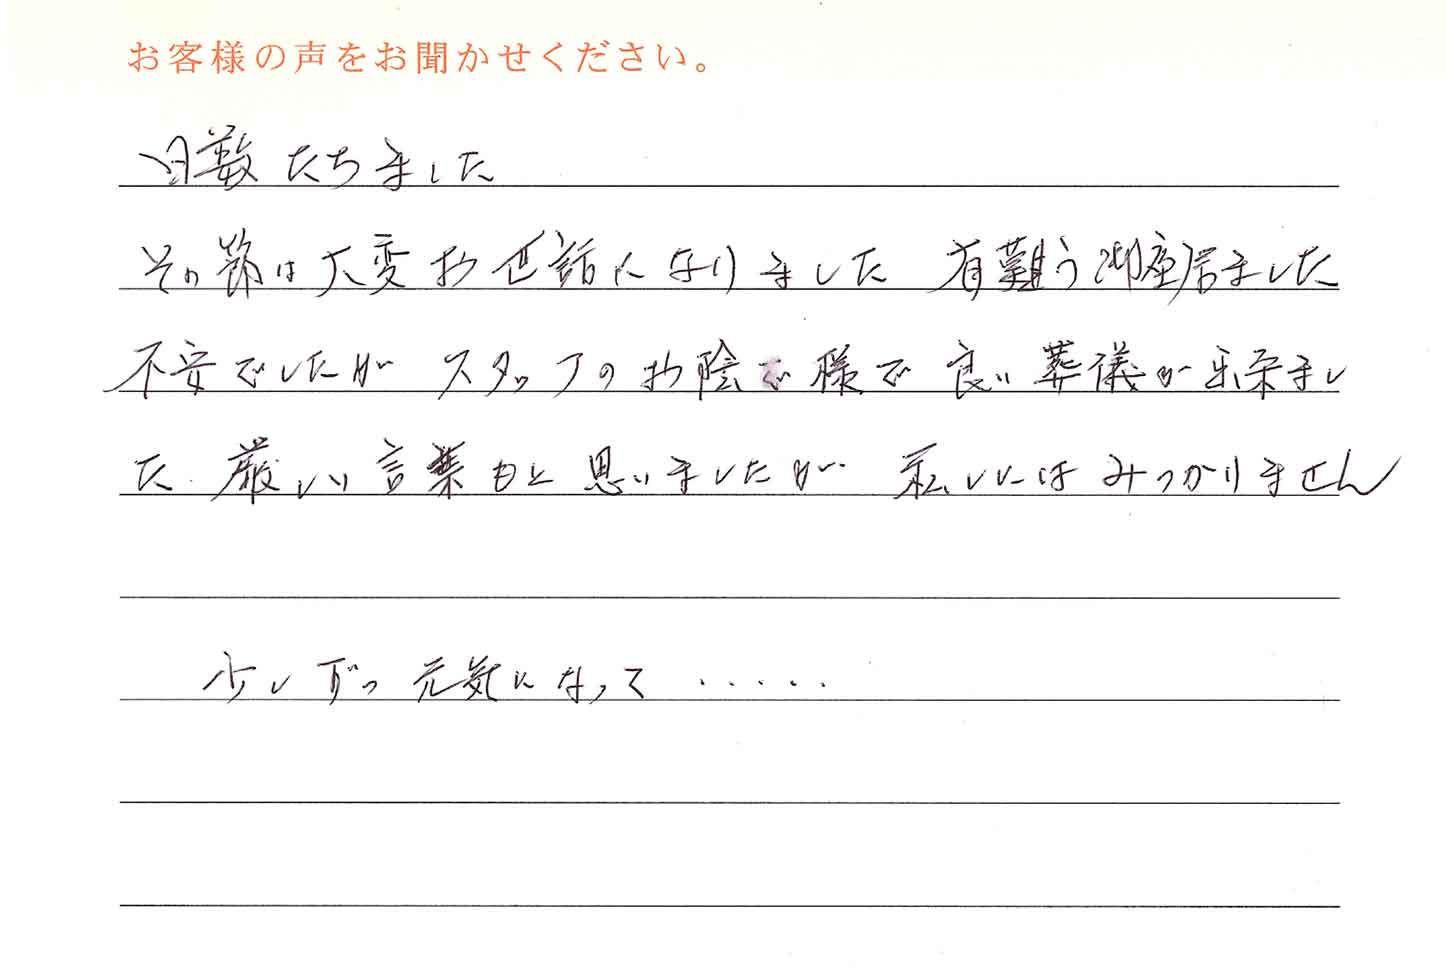 お客様の声をお聞かせください。
日数たちました
その節は大変お世話になりました 有難う御座居ました
不安でしたが スタッフのお陰で様で 良い葬儀が出来まし
た 厳しい言葉もと思いましたが 私しにはみつかりません
少しずつ元気になって ‥‥‥